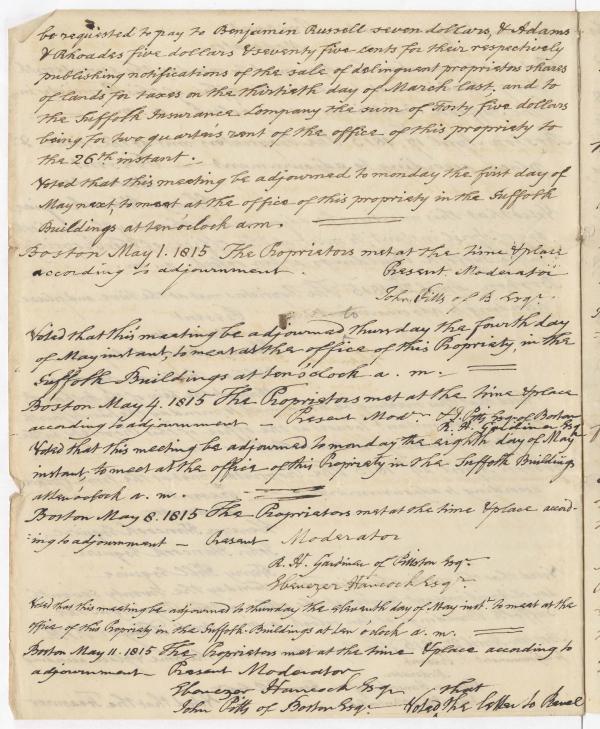 be requested to pay to Benjamin Russell seven dollars, & Adams
& Rhoades five dollars & seventy five cents for their respectively
publishing notifications of the sale of delinquent proprietors shares
of lands for taxes on the thirtieth day of March last, and to
the Suffolk Insurance Company the sum of Forty five dollars
being for two quarters rent of the office of this propriety to
the 26th instant.
Voted that this meeting be adjourned to monday the first day of
May next, to meet at the office of this propriety in the Suffolk
Buildings at ten o'clock a.m.
Boston May 1. 1815 The Proprietors met at the time & place
according to adjournment. Present Moderator
John Pitts of B Esqr.
Voted that this meeting be adjourned thursday the fourth day
of May instant, to meet at the office of this Propriety, in the
Suffolk Buildings at ten o'clock a. m.
Boston May 4. 1815 The Proprietors met at the time & place
according to adjournment — Present Modr. J. Pitts Esq. of Boston
R. H. Gardiner Esq
Voted that this meeting be adjourned to monday the eighth day of May
instant, to meet at the office of this Propriety in the Suffolk Buildings
at ten o'clock a. m.
Boston May 8. 1815 The Proprietors met at the time & place accord-
-ing to adjournment — Present Moderator
R. H. Gardiner of Pittston Esqr.
Ebenezer Hancock Esqr.
Voted that this meeting be adjourned to thursday the eleventh day of May inst. to meet at the
office of this Propriety in the Suffolk Buildings at ten o'clock a. m.
Boston May 11. 1815 The Proprietors met at the time & place according to
adjournment — Present Moderator
Ebenezer Hancock Esqr
John Pitts of Boston Esqr — Voted that the letter to